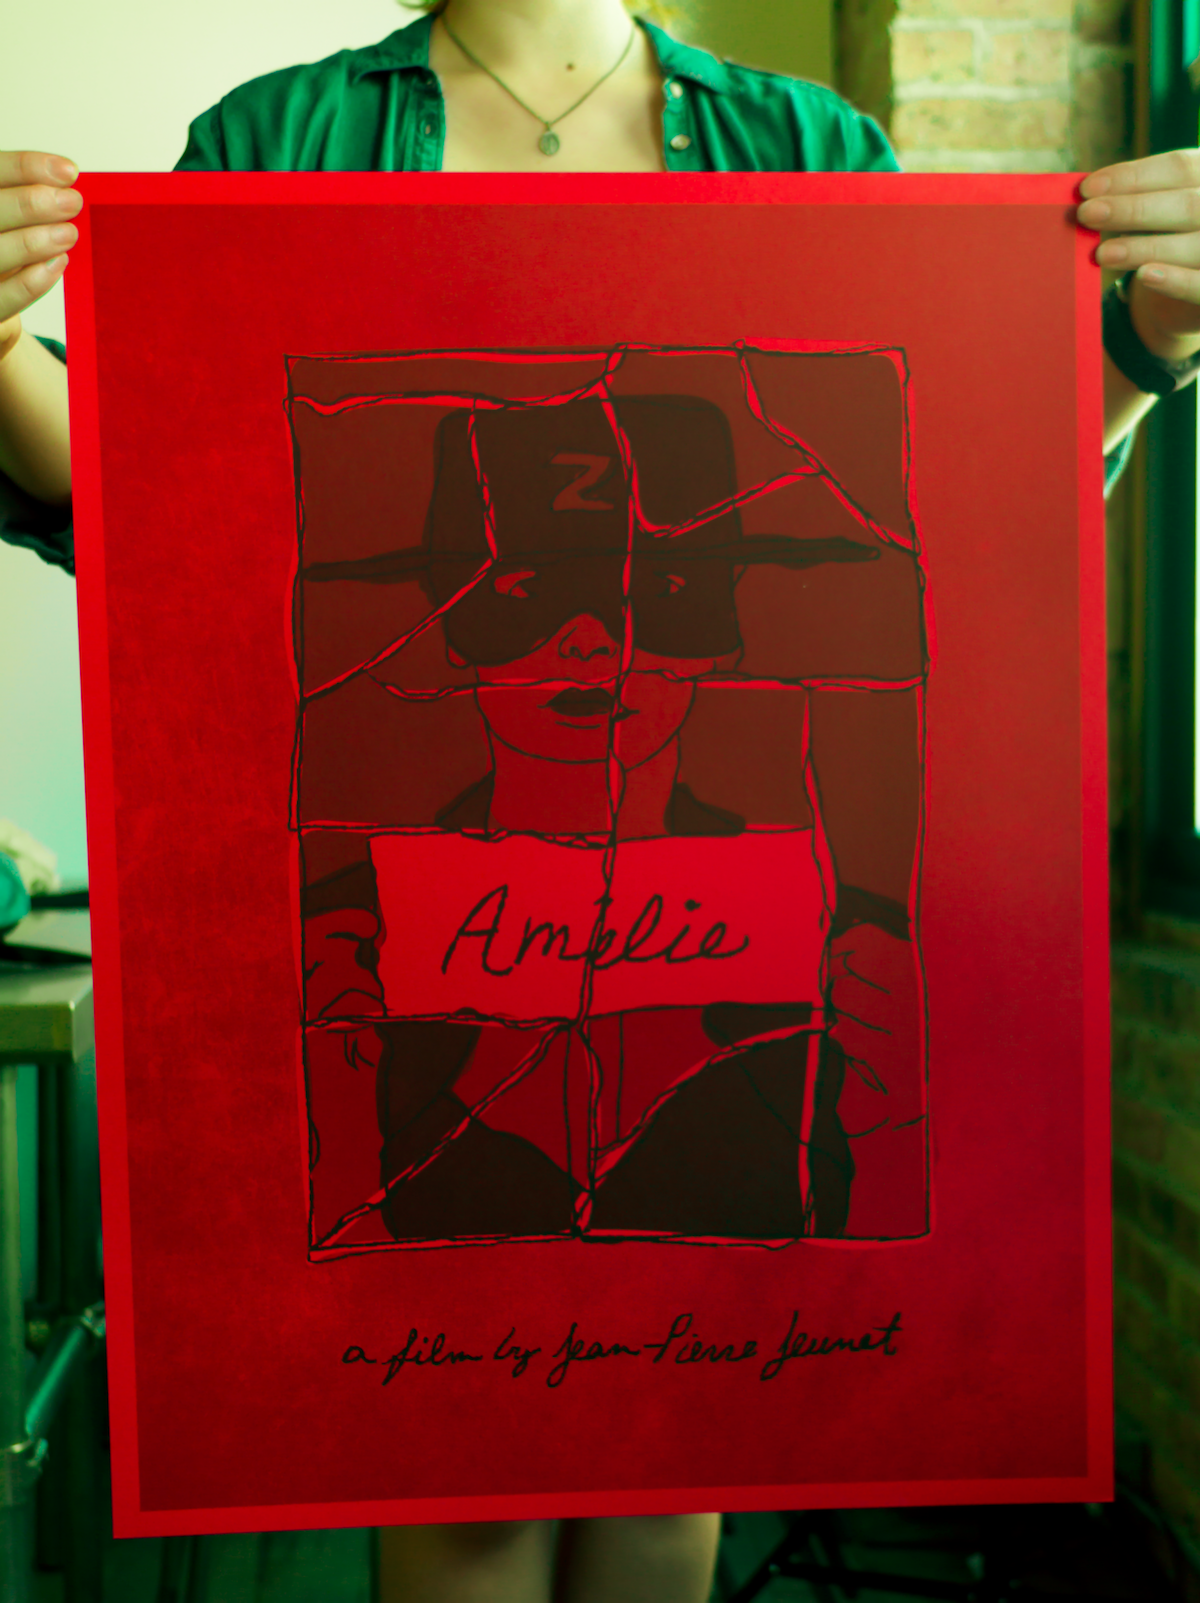 Z
Amelie
a film by Jean-Pierre Jeunet